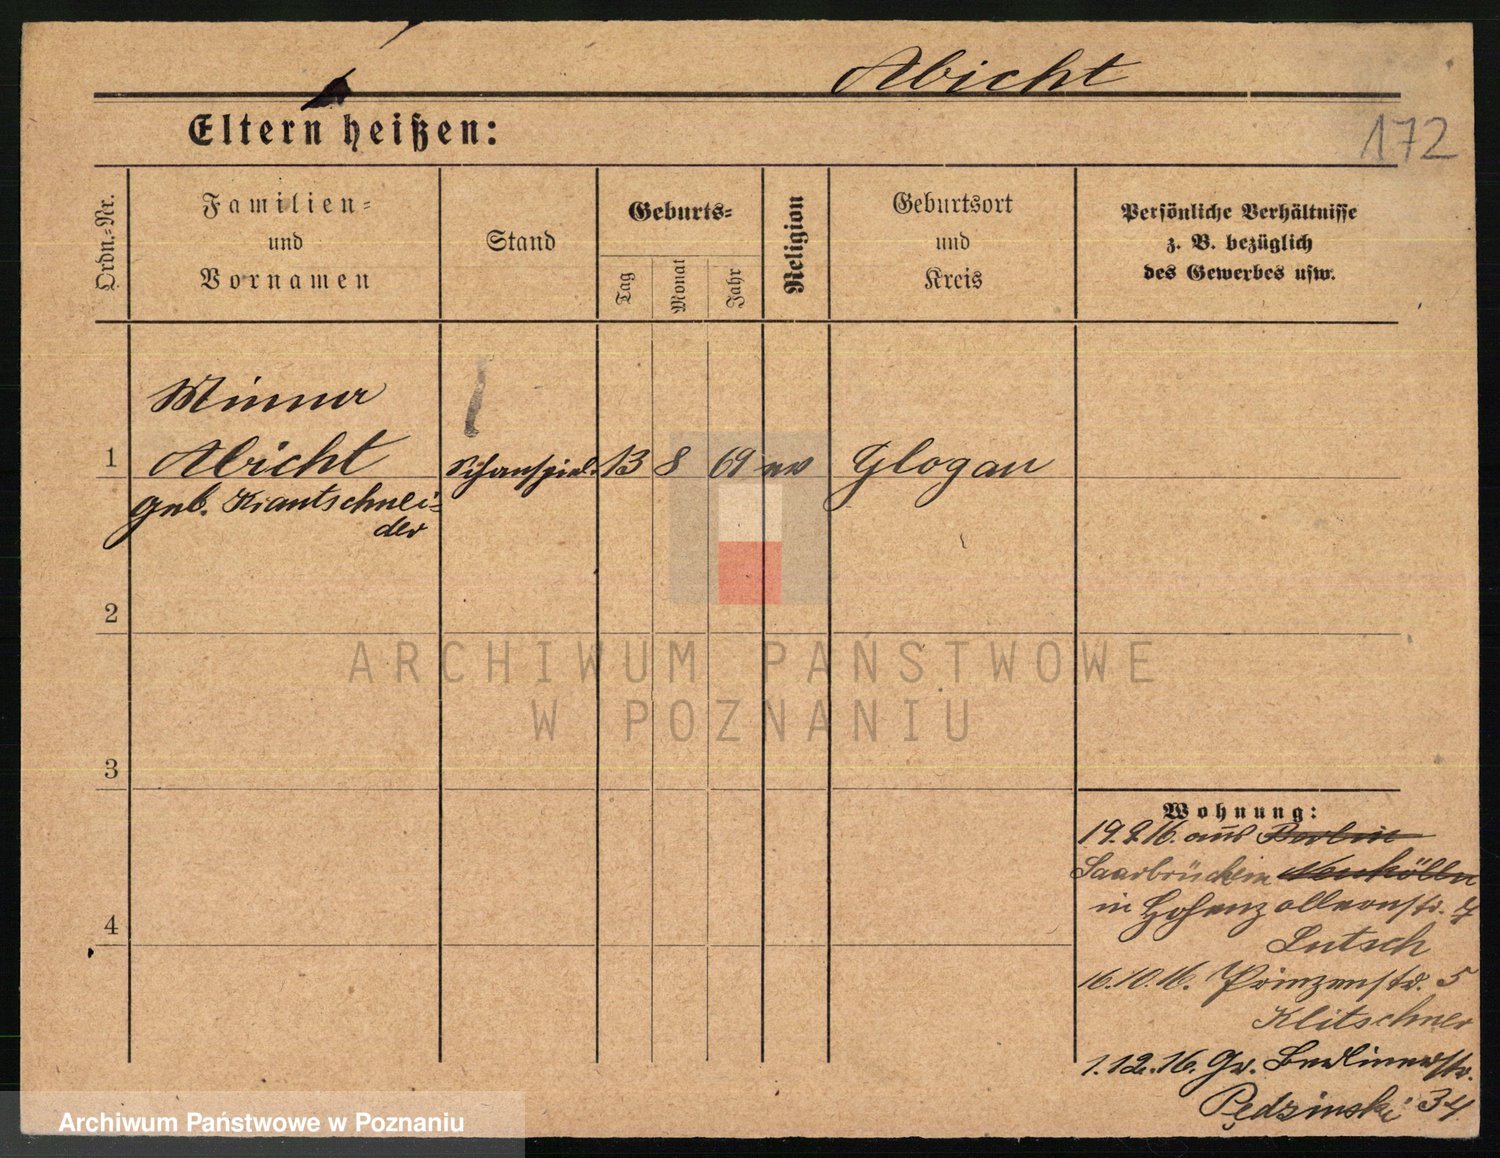 Abicht
Eltern heißen:
172
Ordn.-Nr.
Familien-
und
Vornamen
Stand
Geburts-
Tag
Monat
Jahr
Religion
Geburtsort
und
Kreis
Persönliche Verhältnisse
z. B. bezüglich
des Gewerbes usw.
Minna
1 Abicht Schauspiel. 13 8 69 ev Glogau
geb. Krautschnei-
der
2
ARCHIWUM PAŃSTWOWE
W POZNANIU
3
Wohnung:
19.9.16. aus Berlin
Saarbrücken Neukölln
in Hohenzollernstr. 7
Lutsch
4
16.10.16. Prinzenstr. 5
Klitschner
1.12.16. Gr. Berlinerstr.
Pędzinski 34
Archiwum Państwowe w Poznaniu